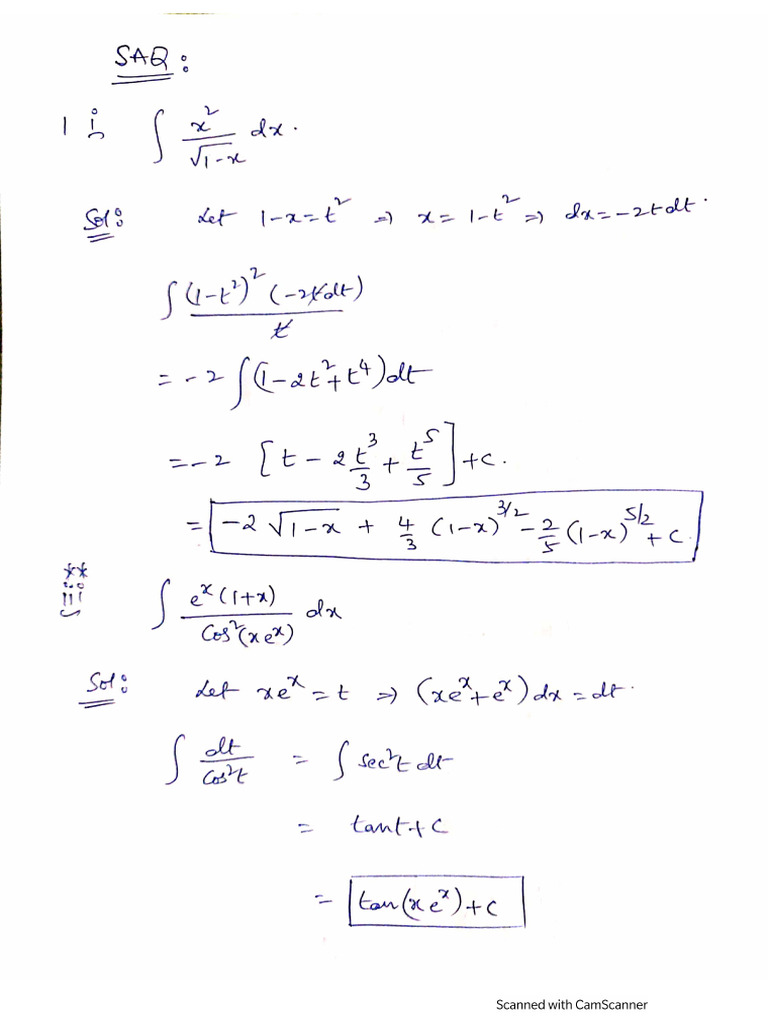 SAQ:
1 i ∫ x²/√(1-x) dx.
Sol: Let 1-x=t² ⇒ x=1-t² ⇒ dx=-2tdt.
∫ (1-t²)² (-2tdt)/t
= -2 ∫(1-2t²+t⁴)dt
= -2 [t - 2t³/3 + t⁵/5] +c.
= -2 √(1-x) + 4/3 (1-x)^3/2 - 2/5 (1-x)^5/2 + c
**
iii ∫ eˣ(1+x)/Cos²(xeˣ) dx
Sol: Let xeˣ=t ⇒ (xeˣ+eˣ)dx=dt.
∫ dt/Cos²t = ∫ sec²t dt
= tant+c
= tan(xeˣ)+c
Scanned with CamScanner